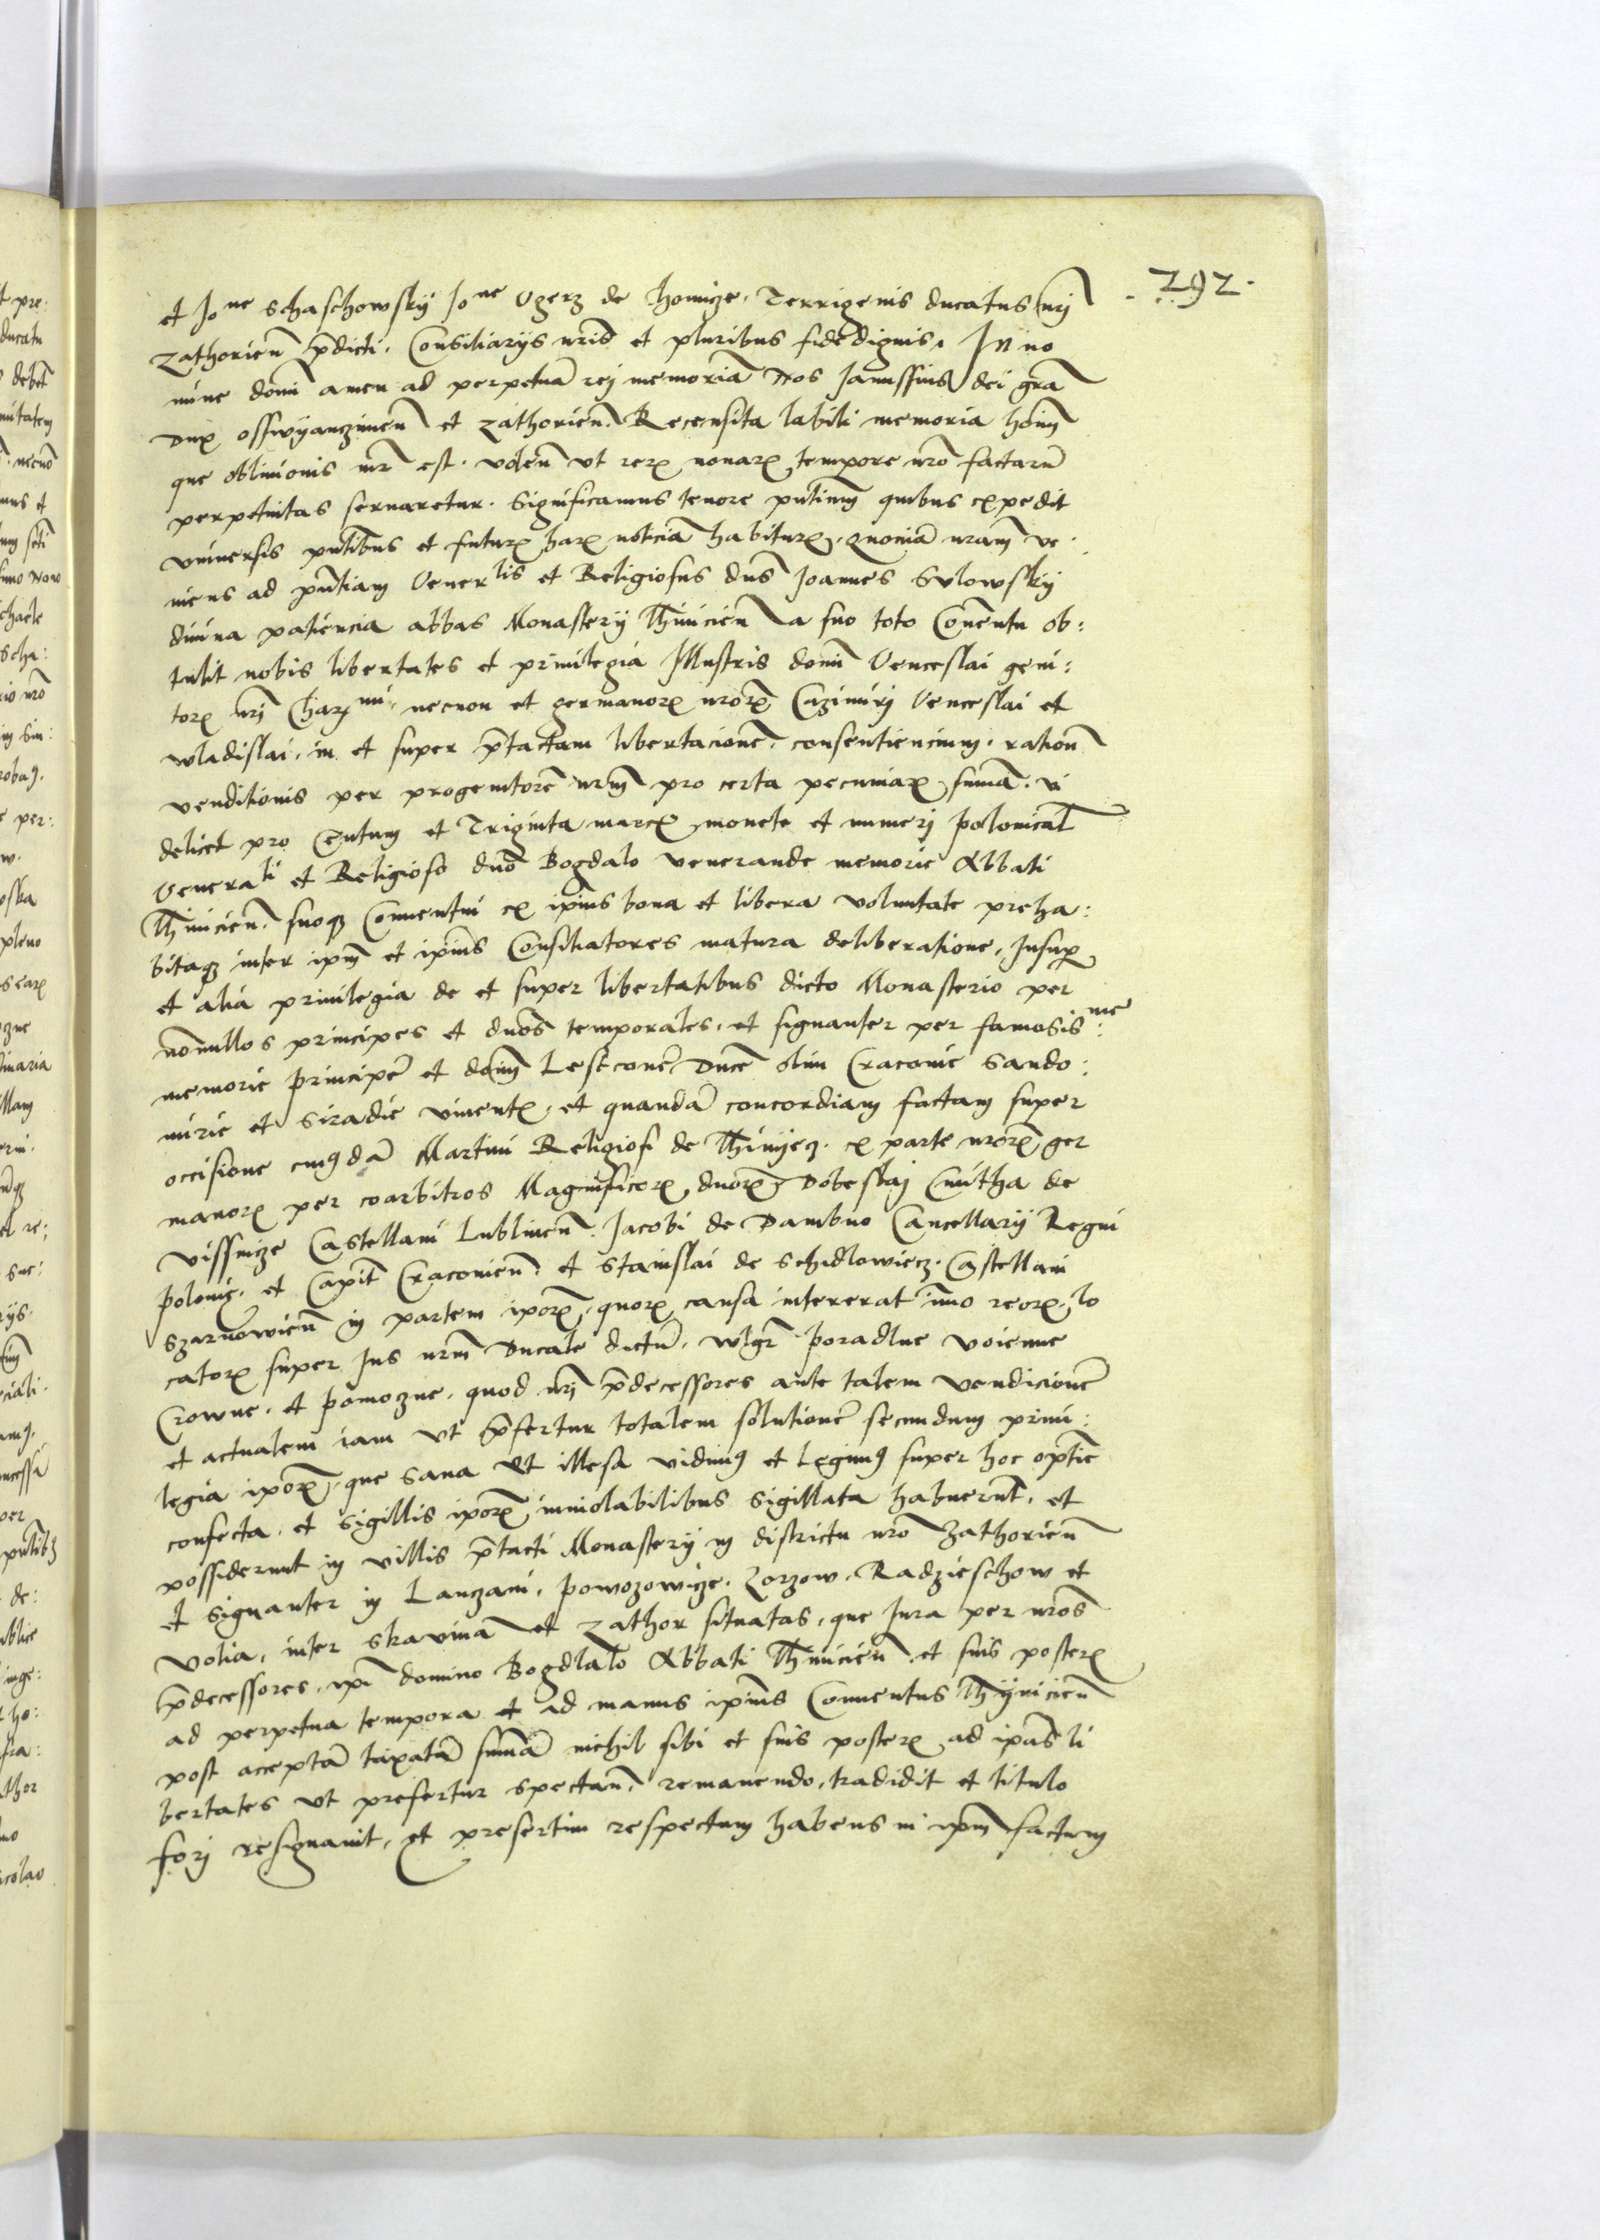 . 292.
et Jo ne Schaschowskÿ Jo ne Ogerz de homicze, Terrigenis ducatus nrj
Zathorien̄ p̄dicti, Consiliarijs nris et pluribus fidedignis. In no
mine domi amen ad perpetuā rej memoriā Nos Janussius dei gr̄a
Dux osswÿanczimen̄ et Zathorien̄. Recensita labili memoria hom̄
que obliuionis mr̄ est. volen̄ vt reꝝ nouaꝝ tempore nr̄o factarū
perpetuitas seruaretur. Significamus tenore pn̄tium quibus expedit
vniuersis pn̄tibus et futuꝝ haꝝ noticiā habituꝝ, Quoniā nram ve:
niens ad pn̄tiam Venerlis et Religiosus dn̄s Joannes Sulowskÿ
diuina patiencia abbas Monasterij Thinicien̄ a suo toto Conuentu ob:
tulit nobis libertates et priuilegia Illustris domi Venceslai geni:
toꝝ nrj Charmi, necnon et germanoꝝ nr̄oꝝ Cazimirj Venceslai et
wladislai, in et super p̄tactam libertacionē, consentiencium, ration̄
venditionis per progenitorē nrm̄ pro certa pecuniaꝝ summā. vi
delicet pro Centum et Triginta marcꝝ monete et numerj polonical
Venerali et Religioso dn̄o Bogdalo venerande memorie Abbati
Thinicien̄. suoqꝫ Conuentui ex ipius bona et libera voluntate preha:
bitaqꝫ inter ipm̄ et ipius Consiliatores matura deliberatione, Insup
et alia priuilegia de et super libertatibus dicto Monasterio per
nonnullos principes et dnos temporales, et signanter per famosis:me
memorie principē et dom̄ Lestconē Ducē olim Cracouie Sando:
mirie et Siradie viuentꝝ, et quandā concordiam factam super
occisione cuiꝰdā Martini Religiosi de Thinyecz. ex parte nr̄oꝝ ger
manoꝝ per coarbitros Magnificoꝝ dnoꝝ Dobeslaj Cmitha de
vissnicze Castellani Lublinen̄. Jacobi de Dambno Cancellarij Regni
polonię. et Capit Cracouien̄. et Stanislai de Schidlowiecz. Castellani
Szarnowien̄ in partem ipoꝝ, quoꝝ causa intererat imo reoꝝ. lo
catoꝝ super Jus nrm̄ Ducale dictū. wlgr poradlne voienne
Crowne. et pomoczne. quod nrj p̄decessores ante talem vendicionē
et actualem iam vt p̄fertur totalem solutionē secundum priui:
legia ipoꝝ, que sana et illesa vidimꝰ et legimꝰ super hoc optie
confecta, et sigillis ipoꝝ inuiolabilibus sigillata habuerunt, et
possiderunt in villis p̄tacti Monasterij in districtu nr̄o Zathorien̄
et signanter in Lanczani, powozowicze, Zorzow. Radzieschow et
volia, inter skavinā et Zathor situatas, que Jura per nr̄os
p̄decessores, ipi domino Bogdlalo Abbati Thinicien̄ et suis posteꝝ
ad perpetua tempora et ad manus ipius Conuentus Thÿnicien̄
post acceptā taxatā sum̄ā nichil sibi et suis posteꝝ ad ipas li
bertates vt prefertur spectan̄. remanendo, tradidit et titulo
forj resignauit, et presertim respectum habens in ipm̄ factum